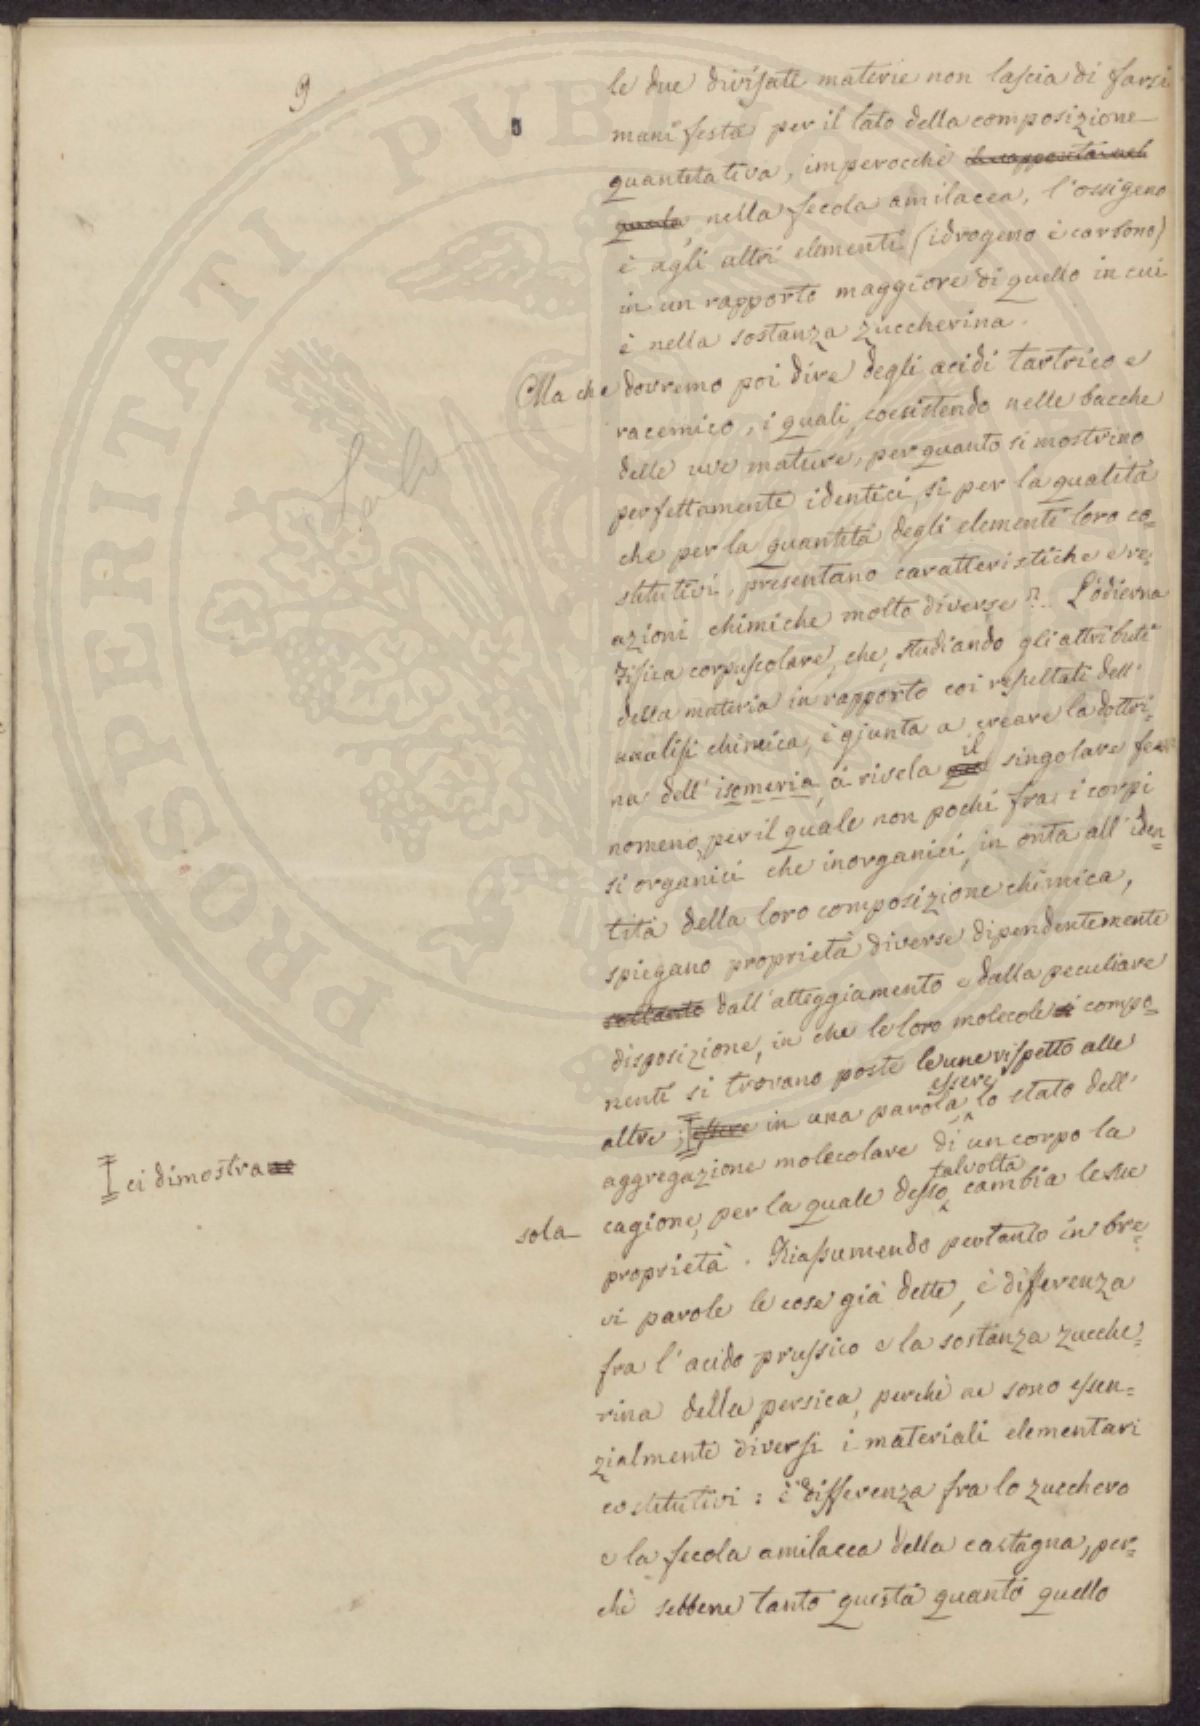 9
le due divisate materie non lascia di farsi
manifesta per il lato della composizione
quantitativa, imperocchè
nella fecola amilacea, l'ossigeno
è agli altri elementi (idrogeno e carbono)
in un rapporto maggiore di quello in cui
è nella sostanza zuccherina.
Ma che dovremo poi dire degli acidi tartrico e
racemico, i quali, coesistendo nelle bacche
delle uve mature, per quanto si mostrino
perfettamente identici, sì per la qualità
che per la quantità degli elementi loro co=
stitutivi, presentano caratteristiche e re=
azioni chimiche molto diverse?.. L'odierna
Fisica corpuscolare, che, studiando gli attributi
della materia in rapporto coi resultati dell'
analisi chimica, è giunta a creare la dottri=
na dell'isomeria, ci rivela il singolare fe=
nomeno, per il quale non pochi fra i corpi
si organici che inorganici, in onta all'iden=
tità della loro composizione chimica,
spiegano proprietà diverse dipendentemente
soltanto dall'atteggiamento e dalla peculiare
disposizione, in che le loro molecole compo=
nenti si trovano poste le une rispetto alle
altre; essere in una parola essere lo stato dell'
ci dimostra
aggregazione molecolare di un corpo la
sola cagione, per la quale desso talvolta cambia le sue
proprietà. Riassumendo pertanto in bre=
vi parole le cose già dette, è differenza
fra l'acido prussico e la sostanza zucche=
rina della persica, perchè ne sono essen=
zialmente diversi i materiali elementari
costitutivi: è differenza fra lo zucchero
e la fecola amilacea della castagna, per=
chè sebbene tanto questa quanto quello
PUBLICAE PROSPERITATI